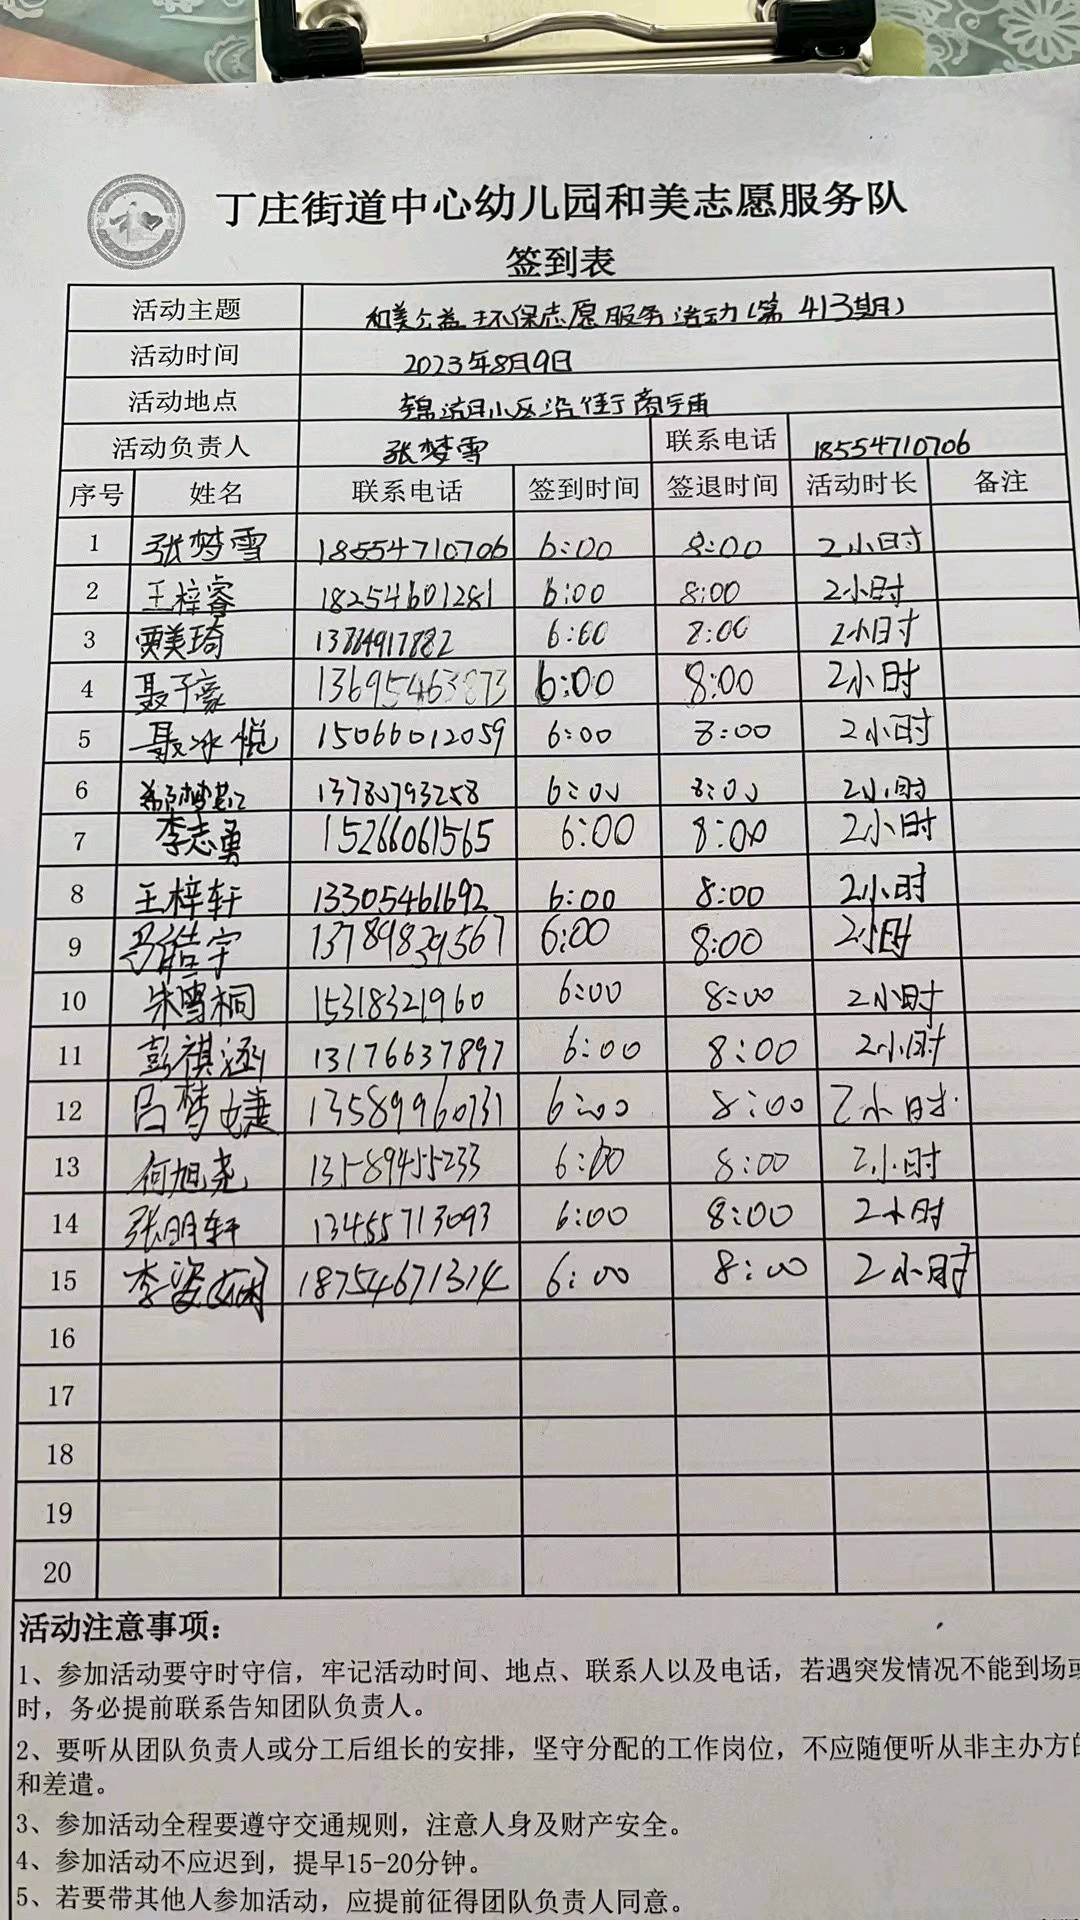 丁庄街道中心幼儿园和美志愿服务队
签到表
活动主题 和美公益环保志愿服务活动(第413期)
活动时间 2023年8月9日
活动地点 小区沿街商铺
活动负责人 张梦雪 联系电话 18554710706
序号 姓名 联系电话 签到时间 签退时间 活动时长 备注
1 张梦雪 18554710706 6:00 8:00 2小时
2 王梓睿 18254601281 6:00 8:00 2小时
3 贾美琦 6:00 8:00 2小时
4 聂子豪 13695463873 6:00 8:00 2小时
5 聂冰悦 15066012059 6:00 8:00 2小时
6 6:00 8:00 2小时
7 李志勇 15266061565 6:00 8:00 2小时
8 王梓轩 13305461692 6:00 8:00 2小时
9 马皓宇 6:00 8:00 2小时
10 朱雪桐 15318321960 6:00 8:00 2小时
11 彭祺涵 13176637897 6:00 8:00 2小时
12 吕梦婕 13589960731 6:00 8:00 2小时
13 何旭尧 13589455233 6:00 8:00 2小时
14 张明轩 13455713093 6:00 8:00 2小时
15 李姿娴 18754671314 6:00 8:00 2小时
16
17
18
19
20
活动注意事项:
1、参加活动要守时守信，牢记活动时间、地点、联系人以及电话，若遇突发情况不能到场或
时，务必提前联系告知团队负责人。
2、要听从团队负责人或分工后组长的安排，坚守分配的工作岗位，不应随便听从非主办方的
和差遣。
3、参加活动全程要遵守交通规则，注意人身及财产安全。
4、参加活动不应迟到，提早15-20分钟。
5、若要带其他人参加活动，应提前征得团队负责人同意。